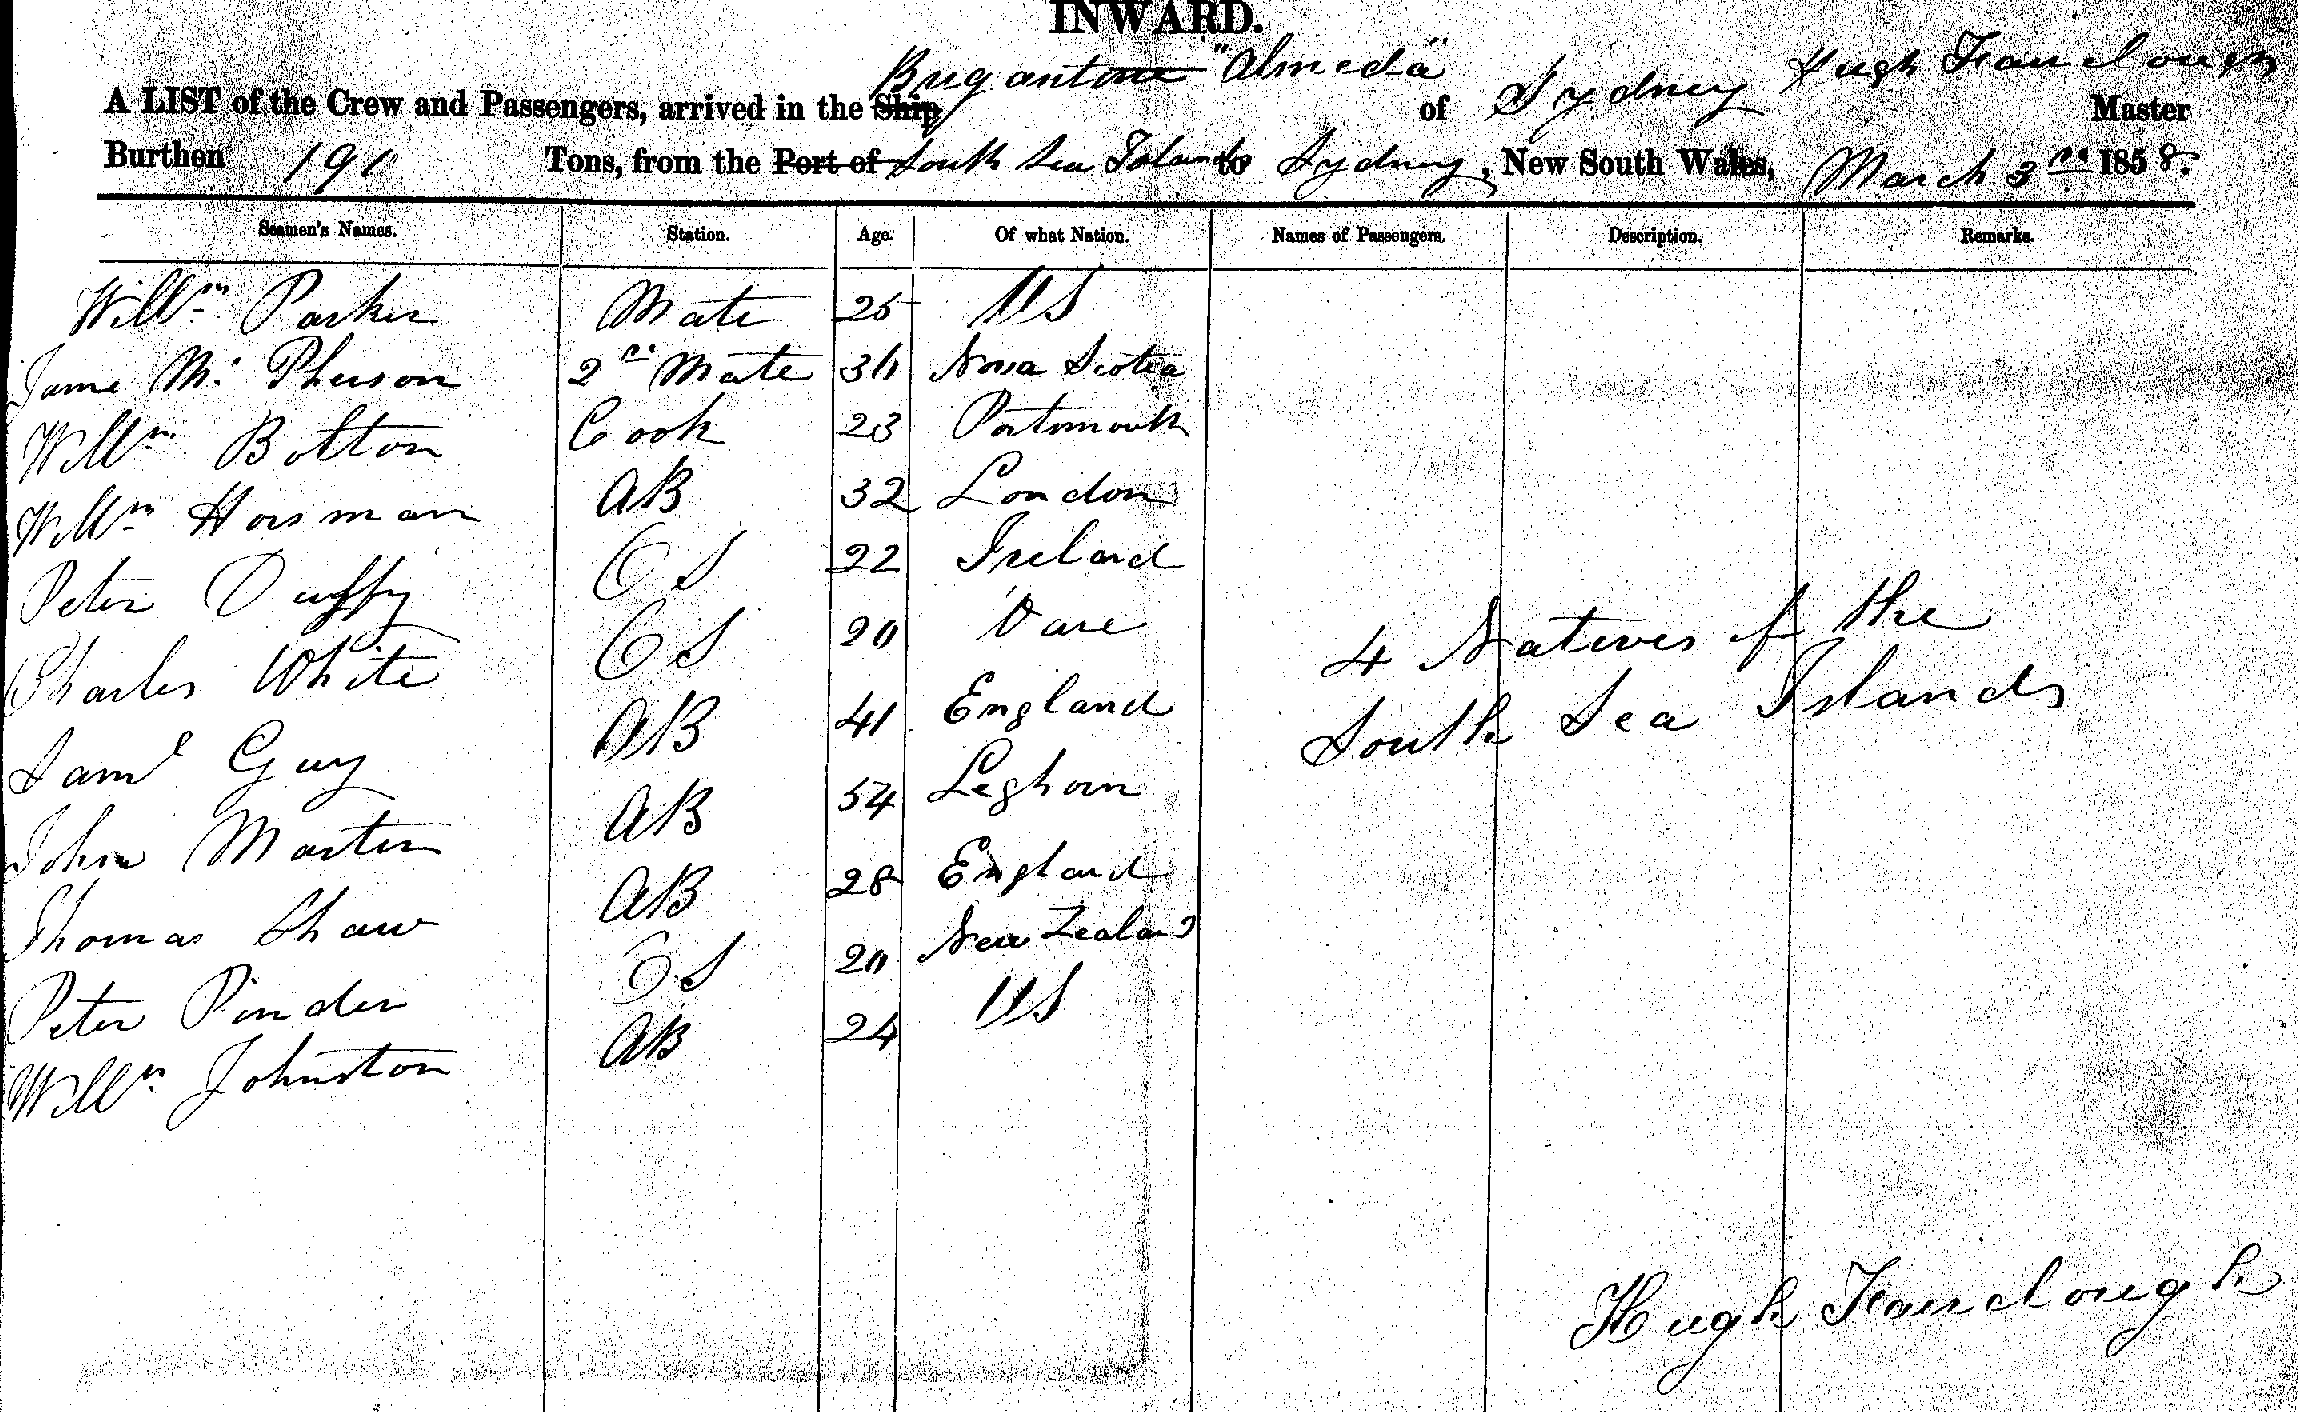 INWARD.
A LIST of the Crew and Passengers, arrived in the Ship Brigantine "Almeda" of Sydney Hugh Fairclough Master
Burthen 191 Tons, from the Port of South Sea Islands to Sydney, New South Wales, March 3rd 1858.
Seamen's Names. Station. Age. Of what Nation. Names of Passengers. Description. Remarks.
Willm Parker Mate 25 US
Jame Mc Pherson 2nd Mate 36 Nova Scotea
Willm Botton Cook 23 Portsmouth
Willm Horsman AB 32 London
Peter Duffy OS 22 Ireland
Charles White OS 20
Saml Guy AB 41 England
John Martin AB 54 Leghorn
Thomas Shaw AB 28 England
Peter Pinder OS 20 New Zealand
Willm Johnston AB 24 US
4 Natives of the
South Sea Islands
Hugh Fairclough